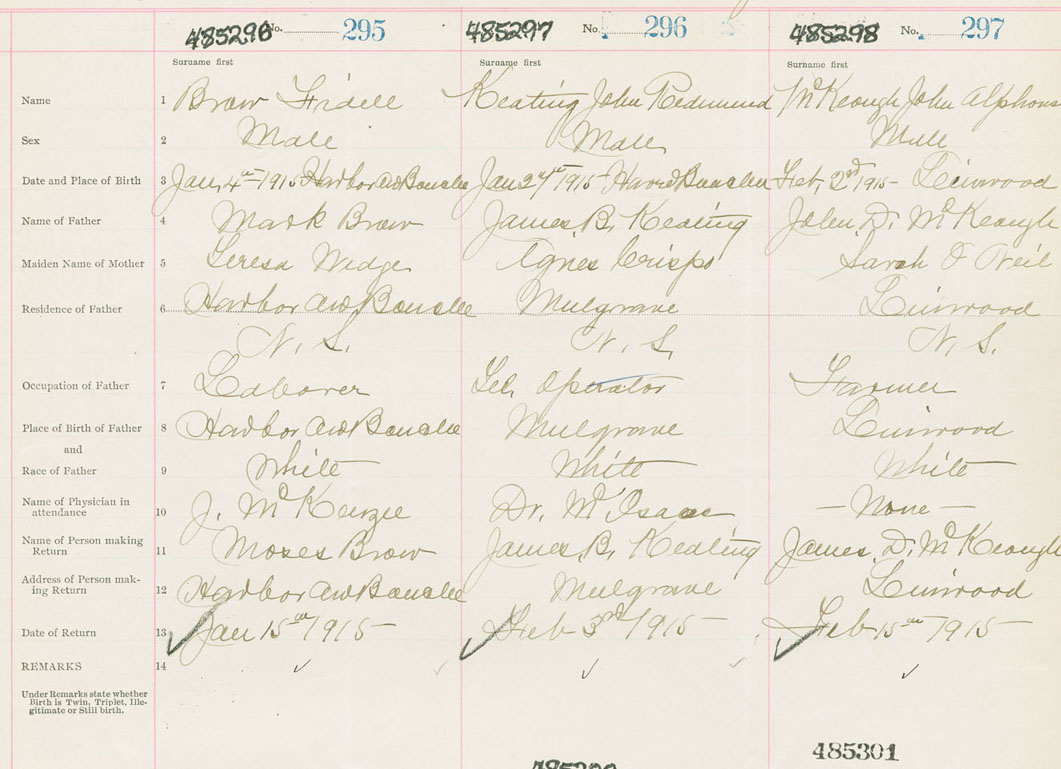 485296 No. 295 485297 No. 296 485298 No. 297
Surname first Surname first Surname first
Name 1 Brow Fidell Keating John Redmund McKeough John Alphons
Sex 2 Male Male Male
Date and Place of Birth 3 Jan, 4th 1915 Harbor au Bouche Jan 27th 1915 Havre Boucher Feb, 2nd 1915 - Linwood
Name of Father 4 Mark Brow James. B. Keating John. D. McKeough
Maiden Name of Mother 5 Teresa Wedge Agnes Crispo Sarah O Neil
Residence of Father 6 Harbor au Bouche Mulgrave Linwood
N. S. N. S. N. S.
Occupation of Father 7 Laborer Tel. Operator Farmer
Place of Birth of Father 8 Harbor au Bouche Mulgrave Linwood
and
Race of Father 9 White White White
Name of Physician in
attendance 10 J. McKenzie Dr. McIsaac - None -
Name of Person making
Return 11 Moses Brow James B. Keating James. D. McKeough
Address of Person mak-
ing Return 12 Harbor au Bouche Mulgrave Linwood
Date of Return 13 Jan 15th 1915 - Feb 3rd 1915 - Feb 15th 1915 -
REMARKS 14
Under Remarks state whether
Birth is Twin, Triplet, Ille-
gitimate or Still birth.
485301